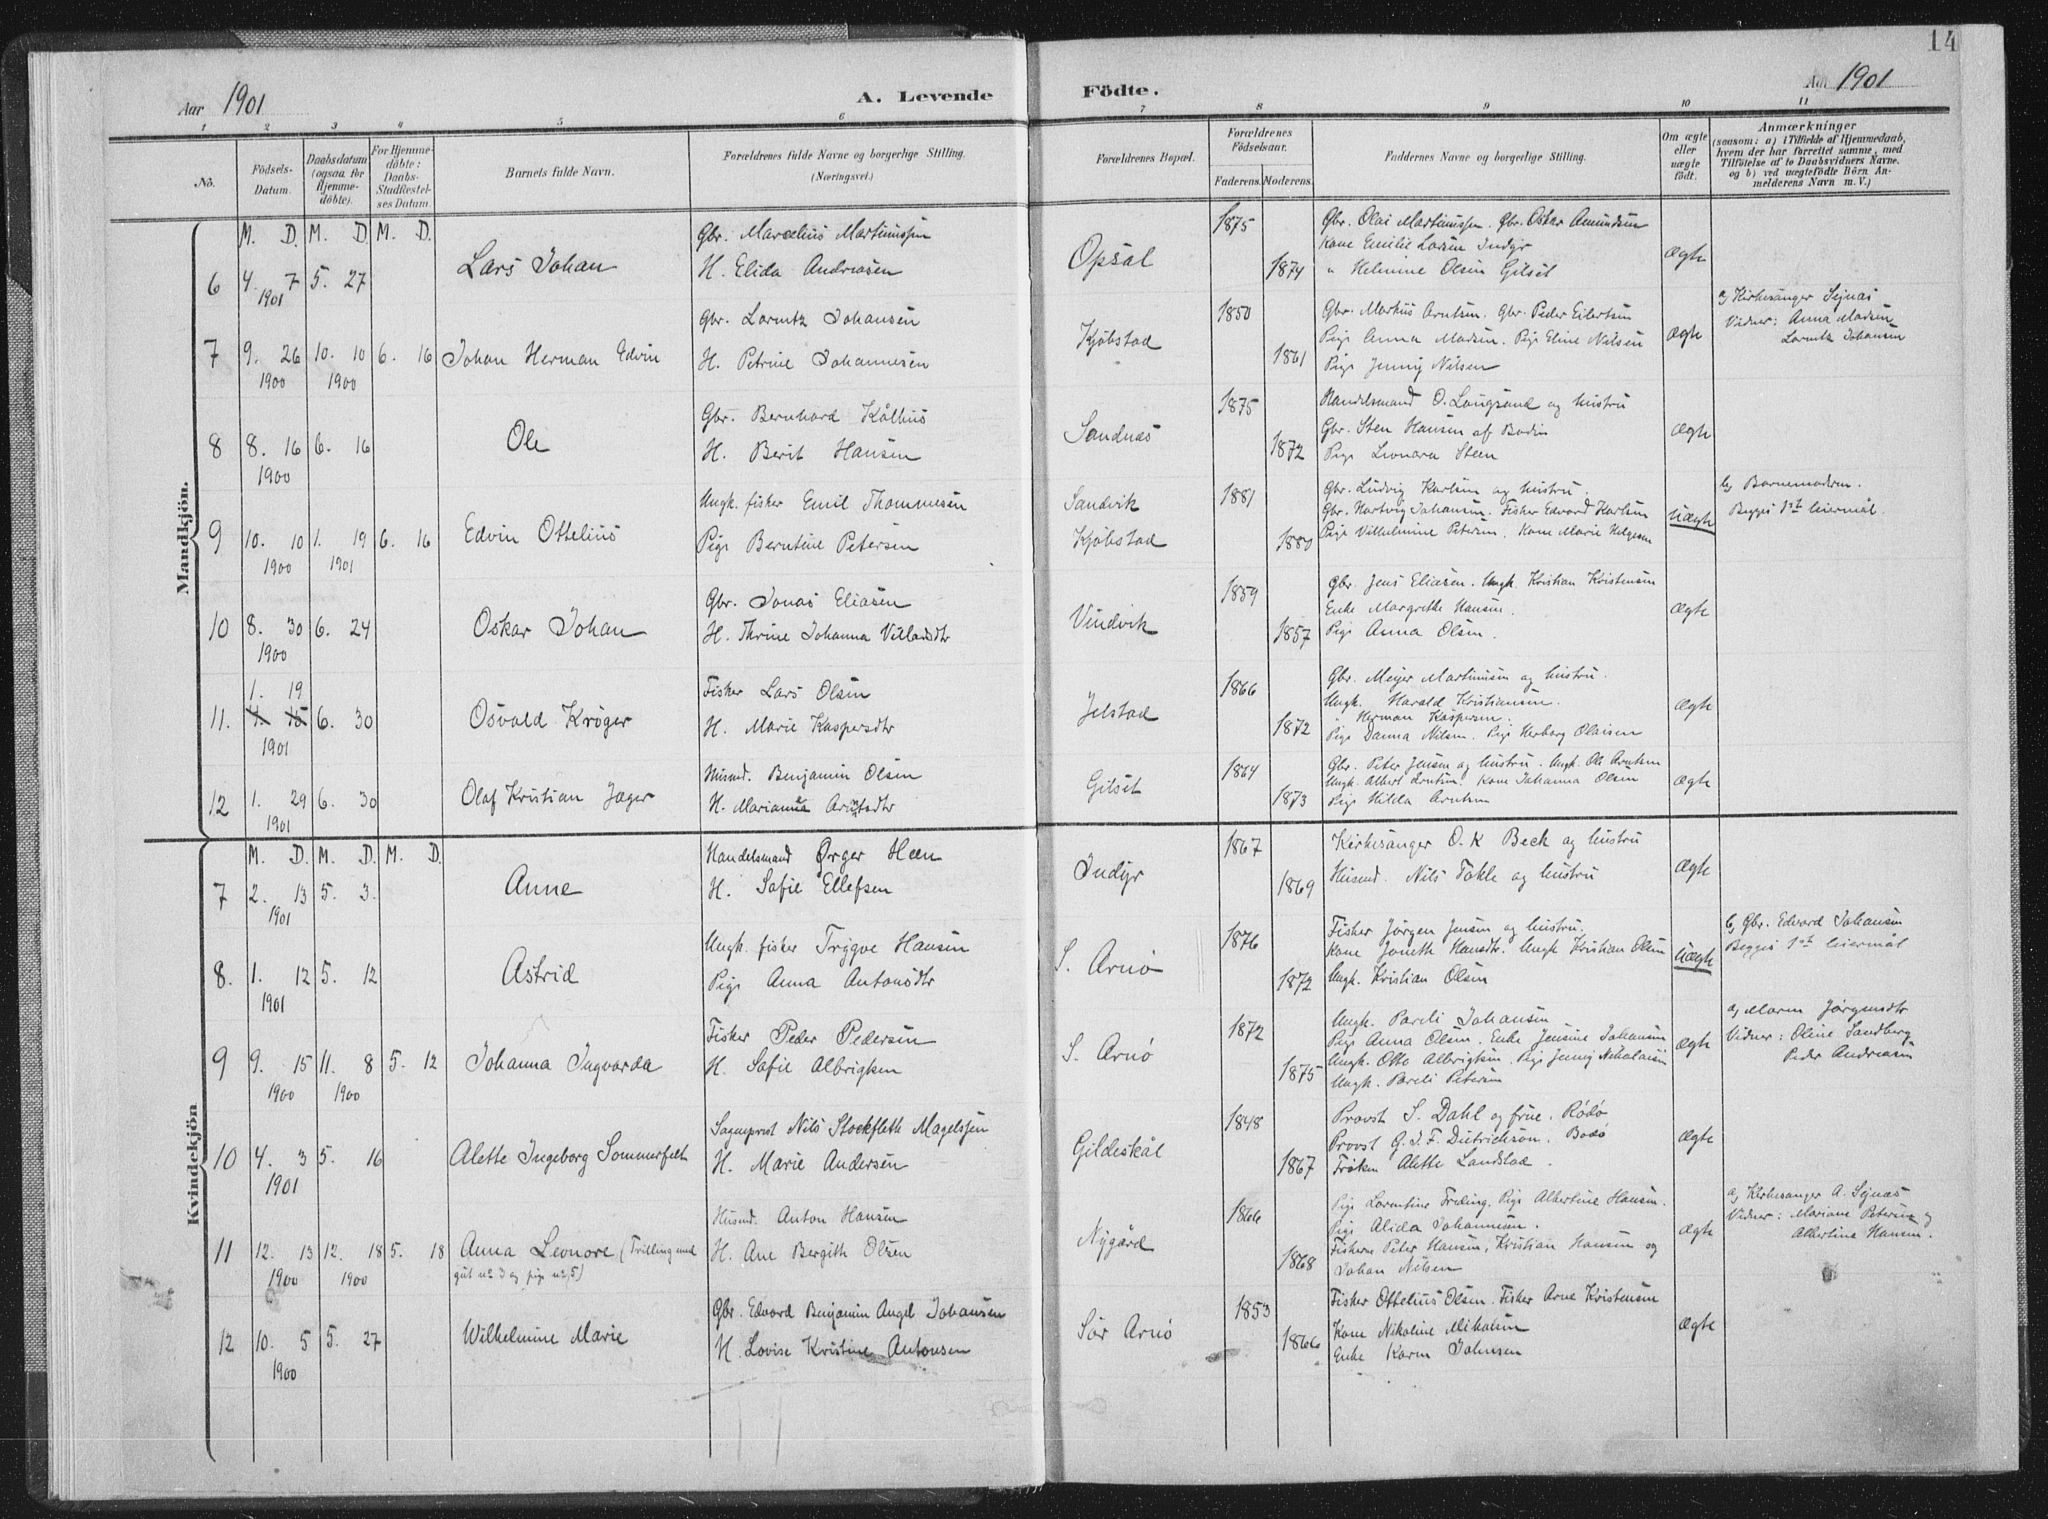 14
Aar 1901
A. Levende Födte.
Aar 1901
1 2 3 4 5 6 7 8 9 10 11
No.
Födsels-Datum.
Daabsdatum (ogsaa for Hjemmedöbte).
For Hjemmedöbte: Daabs-Stadfæstelses Datum.
Barnets fulde Navn.
Forældrenes fulde Navne og borgerlige Stilling.
(Næringsvei.)
Forældrenes Bopæl.
Forældrenes Födselsaar.
Faderens. Moderens.
Faddernes Navne og borgerlige Stilling.
Om ægte eller uægte født.
Anmærkninger
(saasom: a) i Tilfælde af Hjemmedaab,
hvem der har forrettet samme, med
Tilföielse af to Daabsvidners Navne.
og b) ved uægtefödte Börn An-
melderens Navn m. V.)
Mandkjön.
M. D. M. D. M. D.
6 4. 7 1901 5. 27 Lars Johan
Gbr. Marcelius Martinussen
H. Elida Andreasen
Opsal 1875 1874
Gbr. Olai Martinussen. Gbr. Oskar Amundsen
Kone Emilie Larsen Indyr
" Helmine Olsen Gilset
Ægte
7 9. 26 1900 10. 10 1900 6. 16 Johan Herman Edvin
Gbr. Lorentz Johansen
H. Petrine Johannesen
Kjøbstad 1850 1861
Gbr. Markus Arntsen. Gbr. Peder Eilertsen
Pige Anna Madsen. Pige Eline Nilsen
Pige Jenny Nilsen
Ægte
a, Kirkesanger Sejnæs
Vidner: Anna Madsen
Lorentz Johansen
8 8. 16 1900 6. 16 Ole
Gbr. Bernhard Kålhus
H. Berit Hansen
Sandnæs 1875 1872
Handelsmand O. Langsand og hustru
Gbr. Sten Hansen af Bodin
Pige Leonara Steen
Ægte
9 10. 10 1900 1. 19 1901 6. 16 Edvin Ottelius
Ungk. fisker Emil Thommesen
Pige Berntine Petersen
Sandvik
Kjøbstad 1881 1880
Gbr. Ludvig Karlsen og hustru.
Gbr. Hartvig Johansen. Fisker Edvard Karlsen
Pige Vilhelmine Petersen. Kone Marie Helgesen
Uægte
b, Barnemoderen.
Begges 1st leiermål.
10 8. 30 1900 6. 24 Oskar Johan
Gbr. Jonas Eliasen
H. Thrine Johanna Villadsdtr
Vindvik 1859 1857
Gbr. Jens Eliasen. Ungk. Kristian Kristensen
Enke Margrethe Hansen.
Pige Anna Olsen.
Ægte
11. 1. 19 1901 6. 30 Osvald Krøger
Fisker Lars Olsen
H. Marie Kaspersdtr
Jelstad 1866 1872
Gbr. Meyer Martinusen og hustru.
Ungk. Harald Kristiansen.
" Herman Kaspersen.
Pige Danna Nilsen. Pige Herborg Olaisen
Ægte
12 1. 29 1901 6. 30 Olaf Kristian Jæger
Husmd. Benjamin Olsen
H. Marianna Arntsdtr
Gilset 1864 1873
Gbr. Peter Jensen og hustru. Ungk. Ole Arntsen
Ungk. Albert Arntsen. Kone Johanna Olsen
Pige Hilda Arntsen
Ægte
Kvindekjön
M. D. M. D. M. D.
7 2. 13 1901 5. 3. Anne
Handelsmand Ørger Heen
H. Sofie Ellefsen
Indyr 1867 1869
Kirkesanger O. K Beck og hustru
Husmd. Nils Takle og hustru
Ægte
8. 1. 12 1901 5. 12 Astrid
Ungk. fisker Trygve Hansen
Pige Anna Antonsdtr
S. Arnø 1876 1872
Fisker Jørgen Jensen og hustru.
Kone Joneth Hansdtr. Ungk Kristian Olsen
Ungk. Kristian Olsen
Uægte
b, Gbr. Edvard Johansen
Begges 1st leiermål
9 9. 15 1900 11. 8 1900 5. 12 Johanna Ingvarda
Fisker Peder Pedersen
H. Sofie Albrigtsen
S. Arnø 1872 1875
Ungk. Pareli Johansen
Pige Anna Olsen. Enke Jensine Johansen
Ungk. Otte Albrigtsen. Pige Jenny Nikolaisen
Ungk. Pareli Petersen
Ægte
a, Maren Jørgensdtr
Vidner: Oline Sandberg
Peder Andreasen
10 4. 3 1901 5. 16 Alette Ingeborg Sommerfelt
Sogneprest Nils Stockfleth Magelssen
H. Marie Andersen
Gildeskål 1848 1867
Provst S. Dahl og frue. Rødø
Provst G. J. F. Dietrichson. Bodø
Frøken Alette Landstad.
Ægte
11 12. 13 1900 12. 18 1900 5. 18 Anna Leonore (Trilling med
gut nº 3 og pige nº 5)
Husmd. Anton Hansen
H. Ane Bergith Olsen
Nygård 1866 1868
Pige Lorentine Freding. Pige Albertine Hansen.
Pige Alida Johannesen.
Fiskerne Peter Hansen, Kristian Hansen og
Johan Nilsen
Ægte
a, Kirkesanger A. Sejnæs
Vidner: Mariane Petersen og
Albertine Hansen.
12 10. 5 1900 5. 27 Wilhelmine Marie
Gbr. Edvard Benjamin Angel Johansen
H. Lovise Kristine Antonsen
Sør Arnø 1853 1866
Fisker Ottelius Olsen. Fisker Arne Kristensen
Kone Nikoline Mikalsen
Enke Karen Johnsen
Ægte